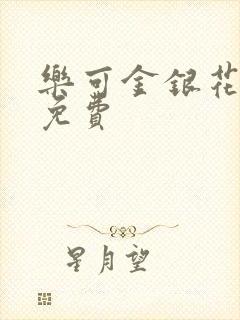 樂可金銀花
免費
星月望